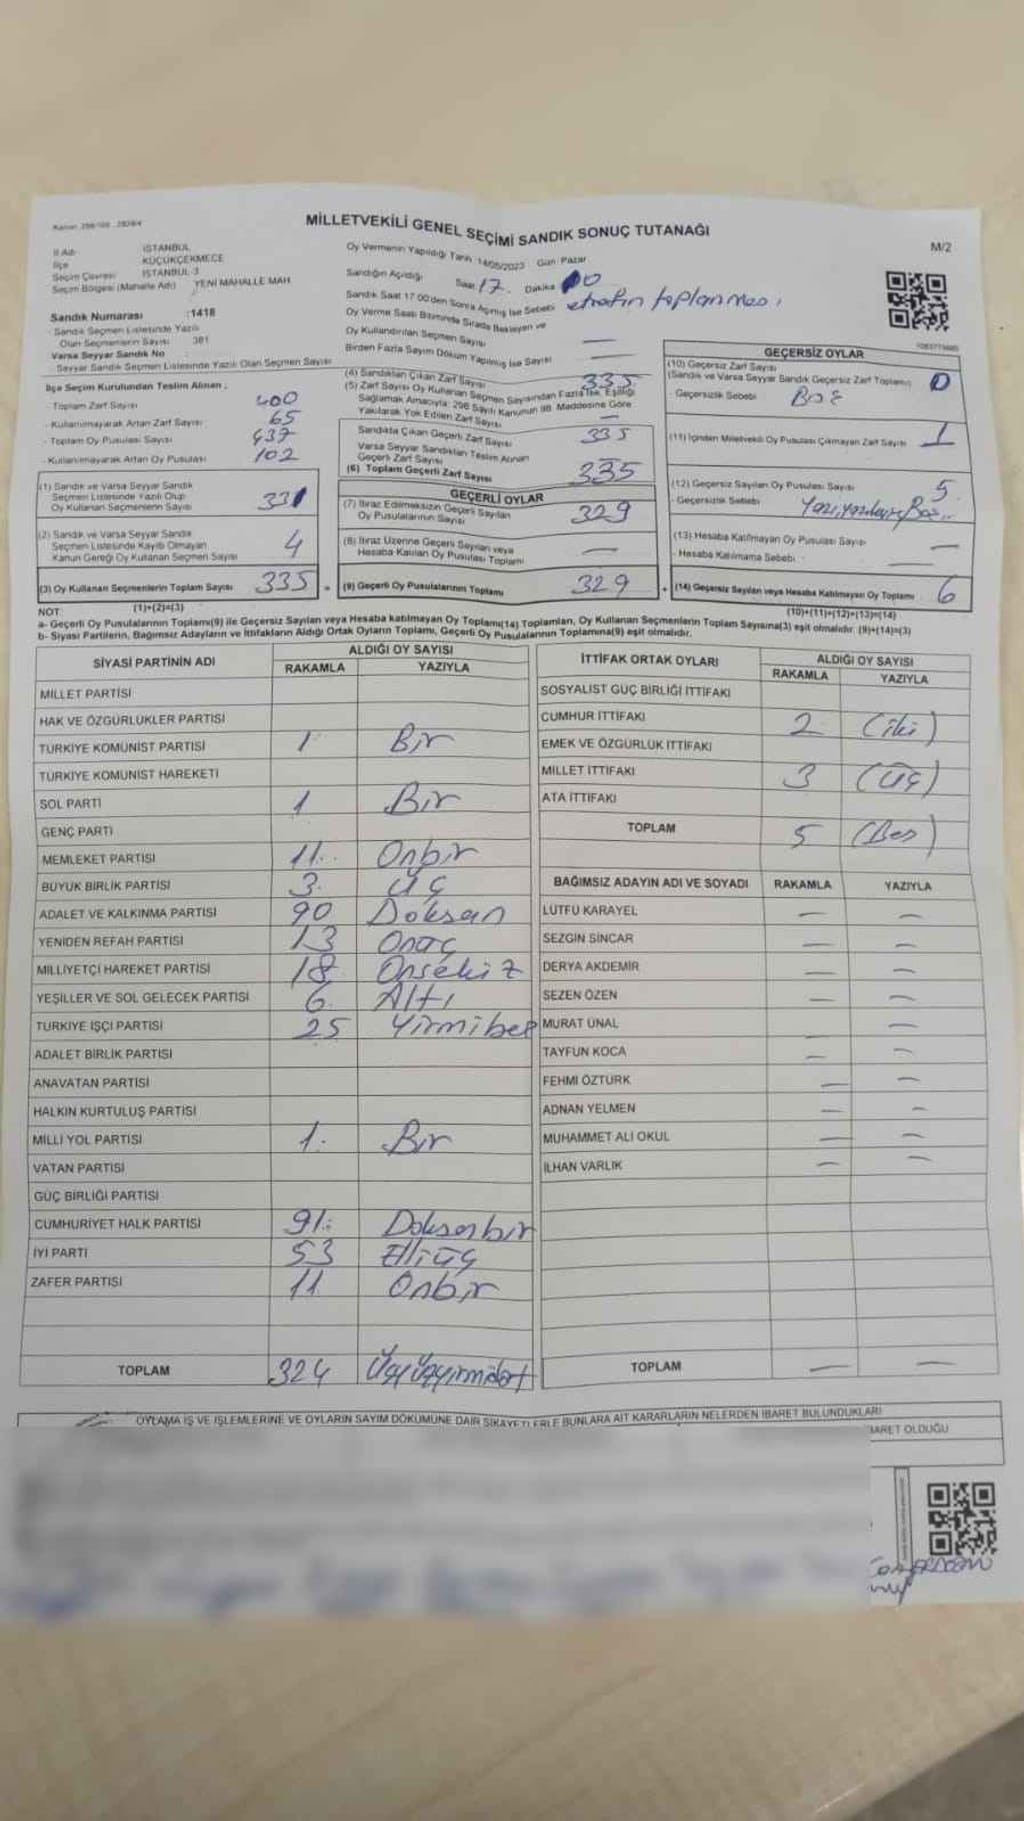 MİLLETVEKİLİ GENEL SEÇİMİ SANDIK SONUÇ TUTANAĞI
M/2
İl Adı İSTANBUL
İlçe KÜÇÜKÇEKMECE
Seçim Çevresi İSTANBUL-3
Seçim Bölgesi (Mahalle Adı) YENİ MAHALLE MAH
Oy Vermenin Yapıldığı Tarih 14/05/2023 Gün Pazar
Sandığın Açıldığı Saat 17. Dakika 00
Sandık Saat 17:00'den Sonra Açılmış İse Sebebi etrafın toplanması
Oy Verme Saati Bitiminde Sırada Bekleyen ve
Oy Kullandırılan Seçmen Sayısı —
Birden Fazla Sayım Döküm Yapılmış İse Sayısı —
Sandık Numarası :1418
Sandık Seçmen Listesinde Yazılı
Olan Seçmenlerin Sayısı 381
Varsa Seyyar Sandık No
Seyyar Sandık Seçmen Listesinde Yazılı Olan Seçmen Sayısı
İlçe Seçim Kurulundan Teslim Alınan ;
- Toplam Zarf Sayısı 400
- Kullanılmayarak Artan Zarf Sayısı 65
- Toplam Oy Pusulası Sayısı 437
- Kullanılmayarak Artan Oy Pusulası 102
(1) Sandık ve Varsa Seyyar Sandık
Seçmen Listesinde Yazılı Olup
Oy Kullanan Seçmenlerin Sayısı 331
(2) Sandık ve Varsa Seyyar Sandık
Seçmen Listesinde Kayıtlı Olmayan
Kanun Gereği Oy Kullanan Seçmen Sayısı 4
(3) Oy Kullanan Seçmenlerin Toplam Sayısı 335
(1)+(2)=(3)
(4) Sandıktan Çıkan Zarf Sayısı 335
(5) Zarf Sayısı Oy Kullanan Seçmen Sayısından Fazla İse, Eşitliği
Sağlamak Amacıyla; 298 Sayılı Kanunun 98. Maddesine Göre
Yakılarak Yok Edilen Zarf Sayısı —
Sandıkta Çıkan Geçerli Zarf Sayısı 335
Varsa Seyyar Sandıktan Teslim Alınan
Geçerli Zarf Sayısı
(6) Toplam Geçerli Zarf Sayısı 335
GEÇERLİ OYLAR
(7) İtiraz Edilmeksizin Geçerli Sayılan
Oy Pusulalarının Sayısı 329
(8) İtiraz Üzerine Geçerli Sayılan veya
Hesaba Katılan Oy Pusulası Toplamı —
(9) Geçerli Oy Pusulalarının Toplamı 329
GEÇERSİZ OYLAR
(10) Geçersiz Zarf Sayısı
(Sandık ve Varsa Seyyar Sandık Geçersiz Zarf Toplamı) 0
- Geçersizlik Sebebi
(11) İçinden Milletvekili Oy Pusulası Çıkmayan Zarf Sayısı 1
(12) Geçersiz Sayılan Oy Pusulası Sayısı 5
- Geçersizlik Sebebi
(13) Hesaba Katılmayan Oy Pusulası Sayısı —
- Hesaba Katılmama Sebebi —
(14) Geçersiz Sayılan veya Hesaba Katılmayan Oy Toplamı 6
(10)+(11)+(12)+(13)=(14)
NOT:
a- Geçerli Oy Pusulalarının Toplamı(9) ile Geçersiz Sayılan veya Hesaba katılmayan Oy Toplamı(14) Toplamları, Oy Kullanan Seçmenlerin Toplam Sayısına(3) eşit olmalıdır. (9)+(14)=(3)
b- Siyasi Partilerin, Bağımsız Adayların ve İttifakların Aldığı Ortak Oyların Toplamı, Geçerli Oy Pusulalarının Toplamına(9) eşit olmalıdır.
SİYASİ PARTİNİN ADI ALDIĞI OY SAYISI
RAKAMLA YAZIYLA
MİLLET PARTİSİ
HAK VE ÖZGÜRLÜKLER PARTİSİ
TÜRKİYE KOMÜNİST PARTİSİ 1 Bir
TÜRKİYE KOMÜNİST HAREKETİ
SOL PARTİ 1 Bir
GENÇ PARTİ
MEMLEKET PARTİSİ 11. Onbir
BÜYÜK BİRLİK PARTİSİ 3. Üç
ADALET VE KALKINMA PARTİSİ 90 Doksan
YENİDEN REFAH PARTİSİ 13 Onüç
MİLLİYETÇİ HAREKET PARTİSİ 18 Onsekiz
YEŞİLLER VE SOL GELECEK PARTİSİ 6. Altı
TÜRKİYE İŞÇİ PARTİSİ 25 Yirmibeş
ADALET BİRLİK PARTİSİ
ANAVATAN PARTİSİ
HALKIN KURTULUŞ PARTİSİ
MİLLİ YOL PARTİSİ 1. Bir
VATAN PARTİSİ
GÜÇ BİRLİĞİ PARTİSİ
CUMHURİYET HALK PARTİSİ 91. Doksanbir
İYİ PARTİ 53 Elliüç
ZAFER PARTİSİ 11 Onbir
TOPLAM 324 Üçyüzyirmidört
İTTİFAK ORTAK OYLARI ALDIĞI OY SAYISI
RAKAMLA YAZIYLA
SOSYALİST GÜÇ BİRLİĞİ İTTİFAKI
CUMHUR İTTİFAKI 2 (iki)
EMEK VE ÖZGÜRLÜK İTTİFAKI
MİLLET İTTİFAKI 3 (Üç)
ATA İTTİFAKI
TOPLAM 5 (Beş)
BAĞIMSIZ ADAYIN ADI VE SOYADI RAKAMLA YAZIYLA
LÜTFÜ KARAYEL — —
SEZGİN SİNCAR — —
DERYA AKDEMİR — —
SEZEN ÖZEN — —
MURAT ÜNAL — —
TAYFUN KOCA — —
FEHMİ ÖZTÜRK — —
ADNAN YELMEN — —
MUHAMMET ALİ OKUL — —
İLHAN VARLIK — —
TOPLAM — —
OYLAMA İŞ VE İŞLEMLERİNE VE OYLARIN SAYIM DÖKÜMÜNE DAİR ŞİKAYETLERLE BUNLARA AİT KARARLARIN NELERDEN İBARET BULUNDUKLARI
BARET OLDUĞU